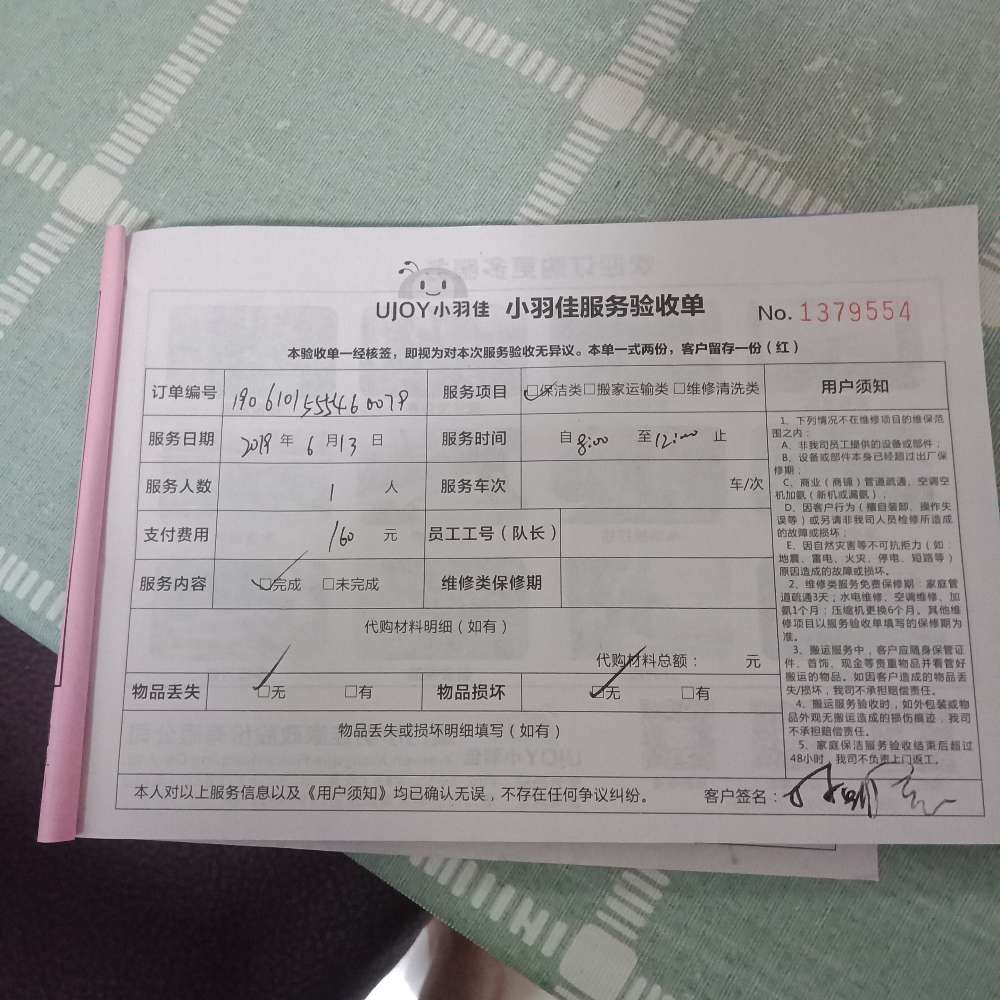 UJOY小羽佳 小羽佳服务验收单 No. 1379554
本验收单一经核签，即视为对本次服务验收无异议。本单一式两份，客户留存一份（红）
订单编号 190610155546 0079 服务项目 □保洁类□搬家运输类 □维修清洗类
服务日期 2019 年 6 月 13 日 服务时间 自 8:00 至 12:00 止
服务人数 1 人 服务车次 车/次
支付费用 160 元 员工工号（队长）
服务内容 □完成 □未完成 维修类保修期
代购材料明细（如有）
代购材料总额： 元
物品丢失 □无 □有 物品损坏 □无 □有
物品丢失或损坏明细填写（如有）
用户须知
1、下列情况不在维修项目的维保范
围之内：
A、非我司员工提供的设备或部件；
B、设备或部件本身已经超过出厂保
修期；
C、商业（商铺）管道疏通、空调空
机加氨（新机或漏氨）；
D、因客户行为（擅自装卸、操作失
误等）或另请非我司人员检修所造成
的故障或损坏；
E、因自然灾害等不可抗拒力（如：
地震、雷电、火灾、停电、短路等）
原因造成的故障或损坏。
2、维修类服务免费保修期：家庭管
道疏通3天；水电维修、空调维修、加
氨1个月；压缩机更换6个月。其他维
修项目以服务验收单填写的保修期为
准。
3、搬运服务中，客户应随身保管证
件、首饰、现金等贵重物品并看管好
搬运的物品。如因客户造成的物品丢
失/损坏，我司不承担赔偿责任。
4、搬运服务验收时，如外包装或物
品外观无搬运造成的损伤痕迹，我司
不承担赔偿责任。
5、家庭保洁服务验收结束后超过
48小时，我司不负责上门返工。
本人对以上服务信息以及《用户须知》均已确认无误，不存在任何争议纠纷。 客户签名：